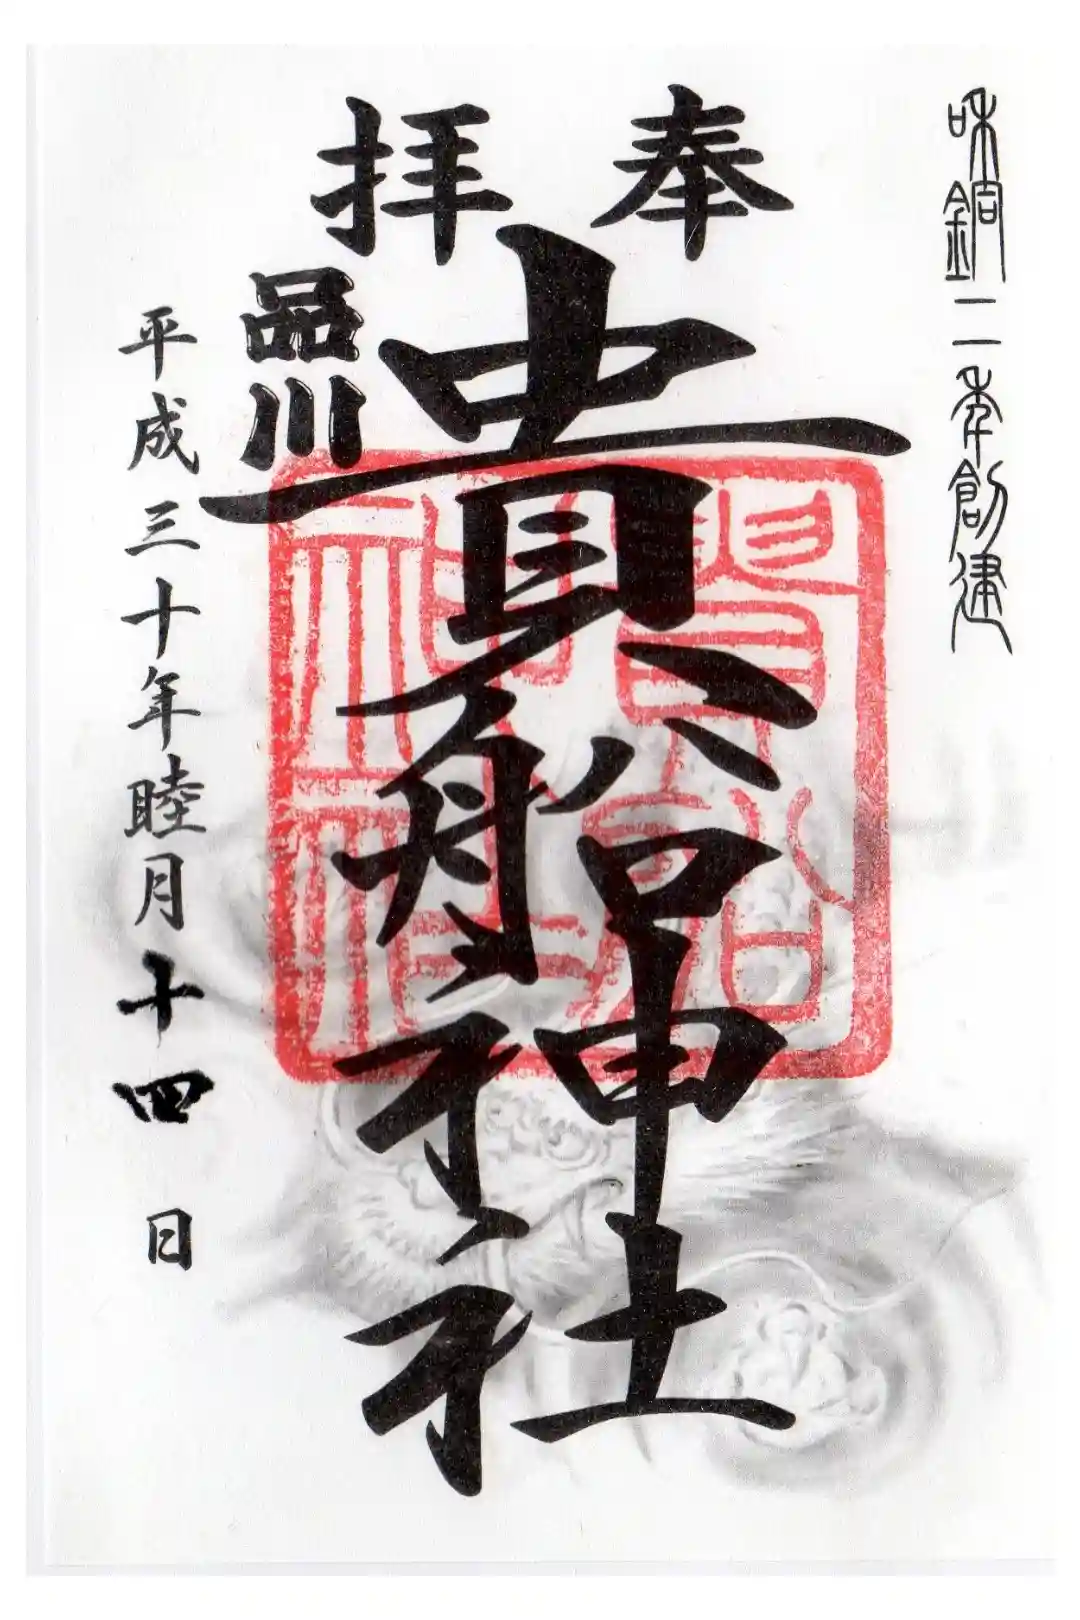 和銅二年創建
奉拝
貴船神社
品川
平成三十年睦月十四日
貴船神社